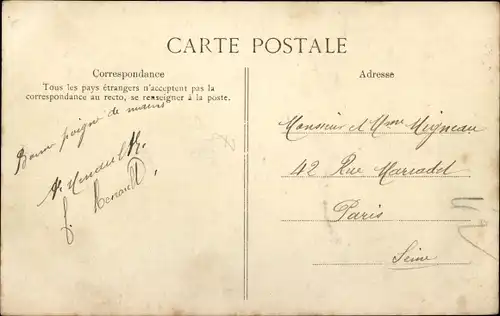 CARTE POSTALE
Correspondance
Tous les pays étrangers n'acceptent pas la
correspondance au recto, se renseigner à la poste.
Bonne poignée de mains
Adresse
Monsieur et Mme Migneau
42 Rue Marcadet
Paris
Seine